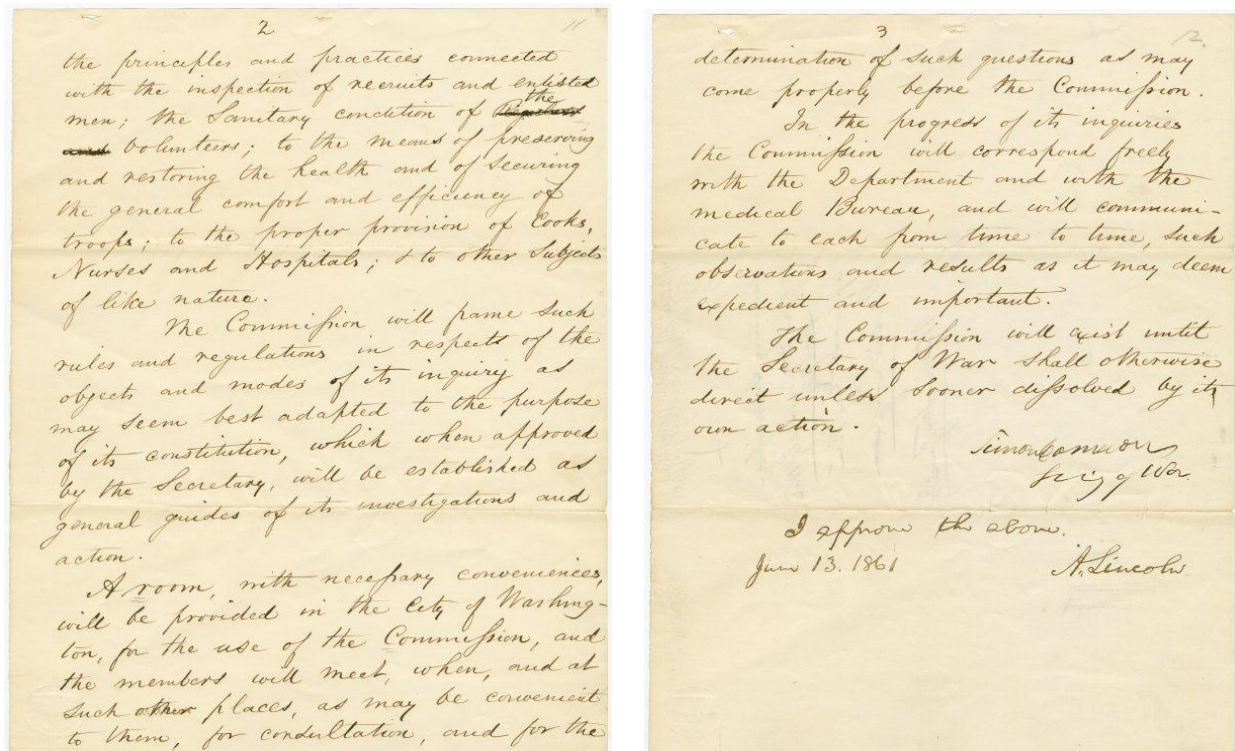 2
11
the principles and practices connected
with the inspection of recruits and enlisted
the
men; the Sanitary condition of
Volunteers; to the means of preserving
and restoring the health and of securing
the general comfort and efficiency of
troops; to the proper provision of Cooks,
Nurses and Hospitals; & to other Subjects
of like nature.
The Commission will frame such
rules and regulations in respects of the
objects and modes of its inquiry as
may seem best adapted to the purpose
of its constitution, which when approved
by the Secretary, will be established as
general guides of its investigations and
action.
A room, with necessary conveniences,
will be provided in the City of Washing-
ton, for the use of the Commission, and
the members will meet, when, and at
such other places, as may be convenient
to them, for consultation, and for the
3
12.
determination of such questions as may
come properly before the Commission.
In the progress of its inquiries
the Commission will correspond freely
with the Department and with the
medical Bureau, and will communi-
cate to each from time to time, such
observations and results as it may deem
expedient and important.
The Commission will exist until
the Secretary of War shall otherwise
direct unless sooner dissolved by its
own action.
Simon Cameron
Secy of War.
I approve the above.
June 13. 1861
A. Lincoln